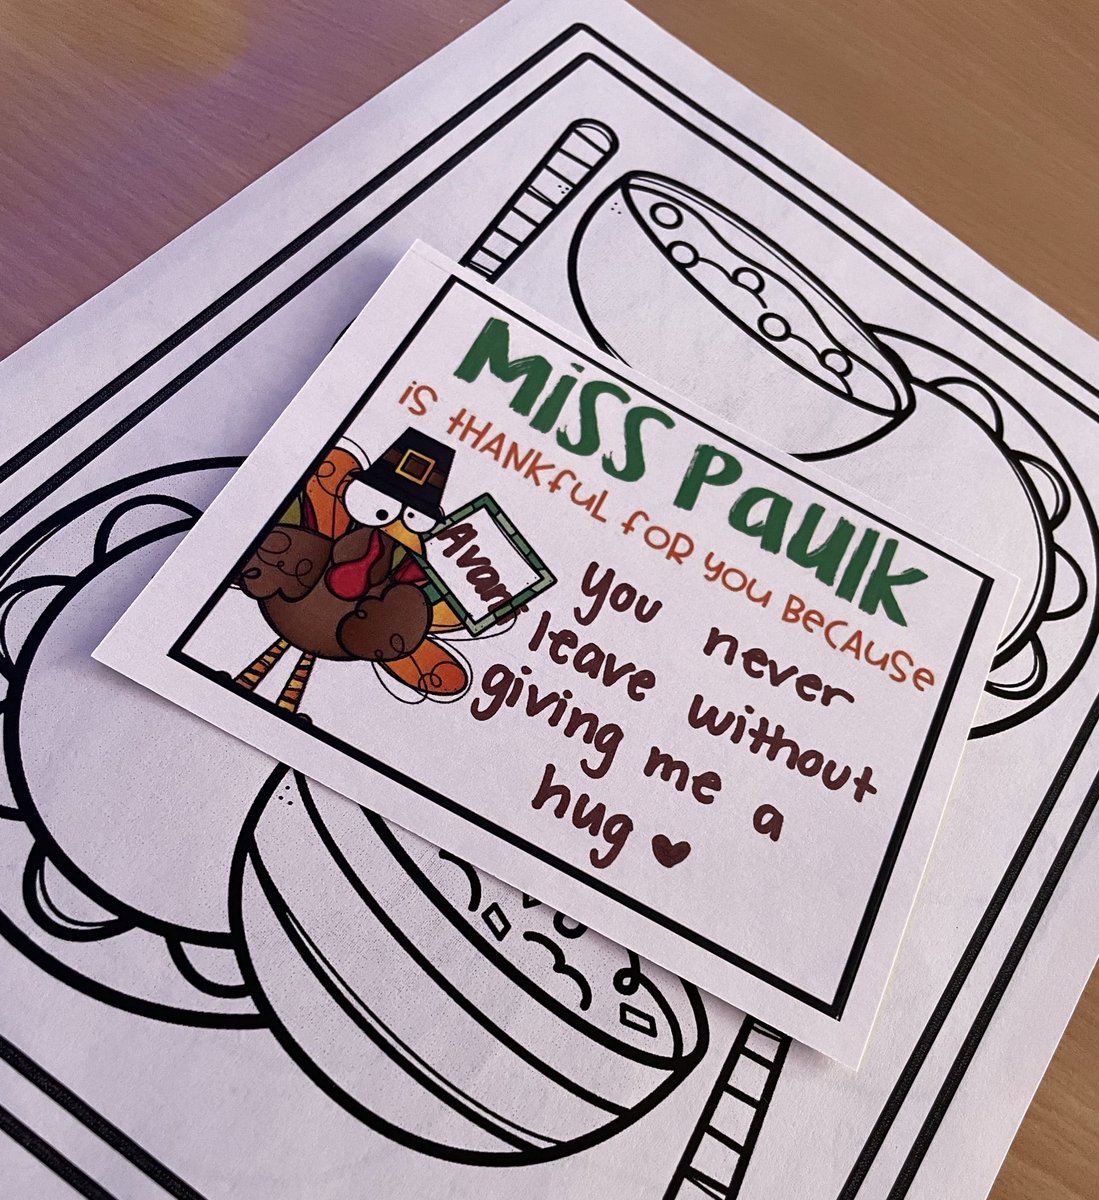 Miss Paulk
is thankful for you because
Avani
you never
leave without
giving me a
hug